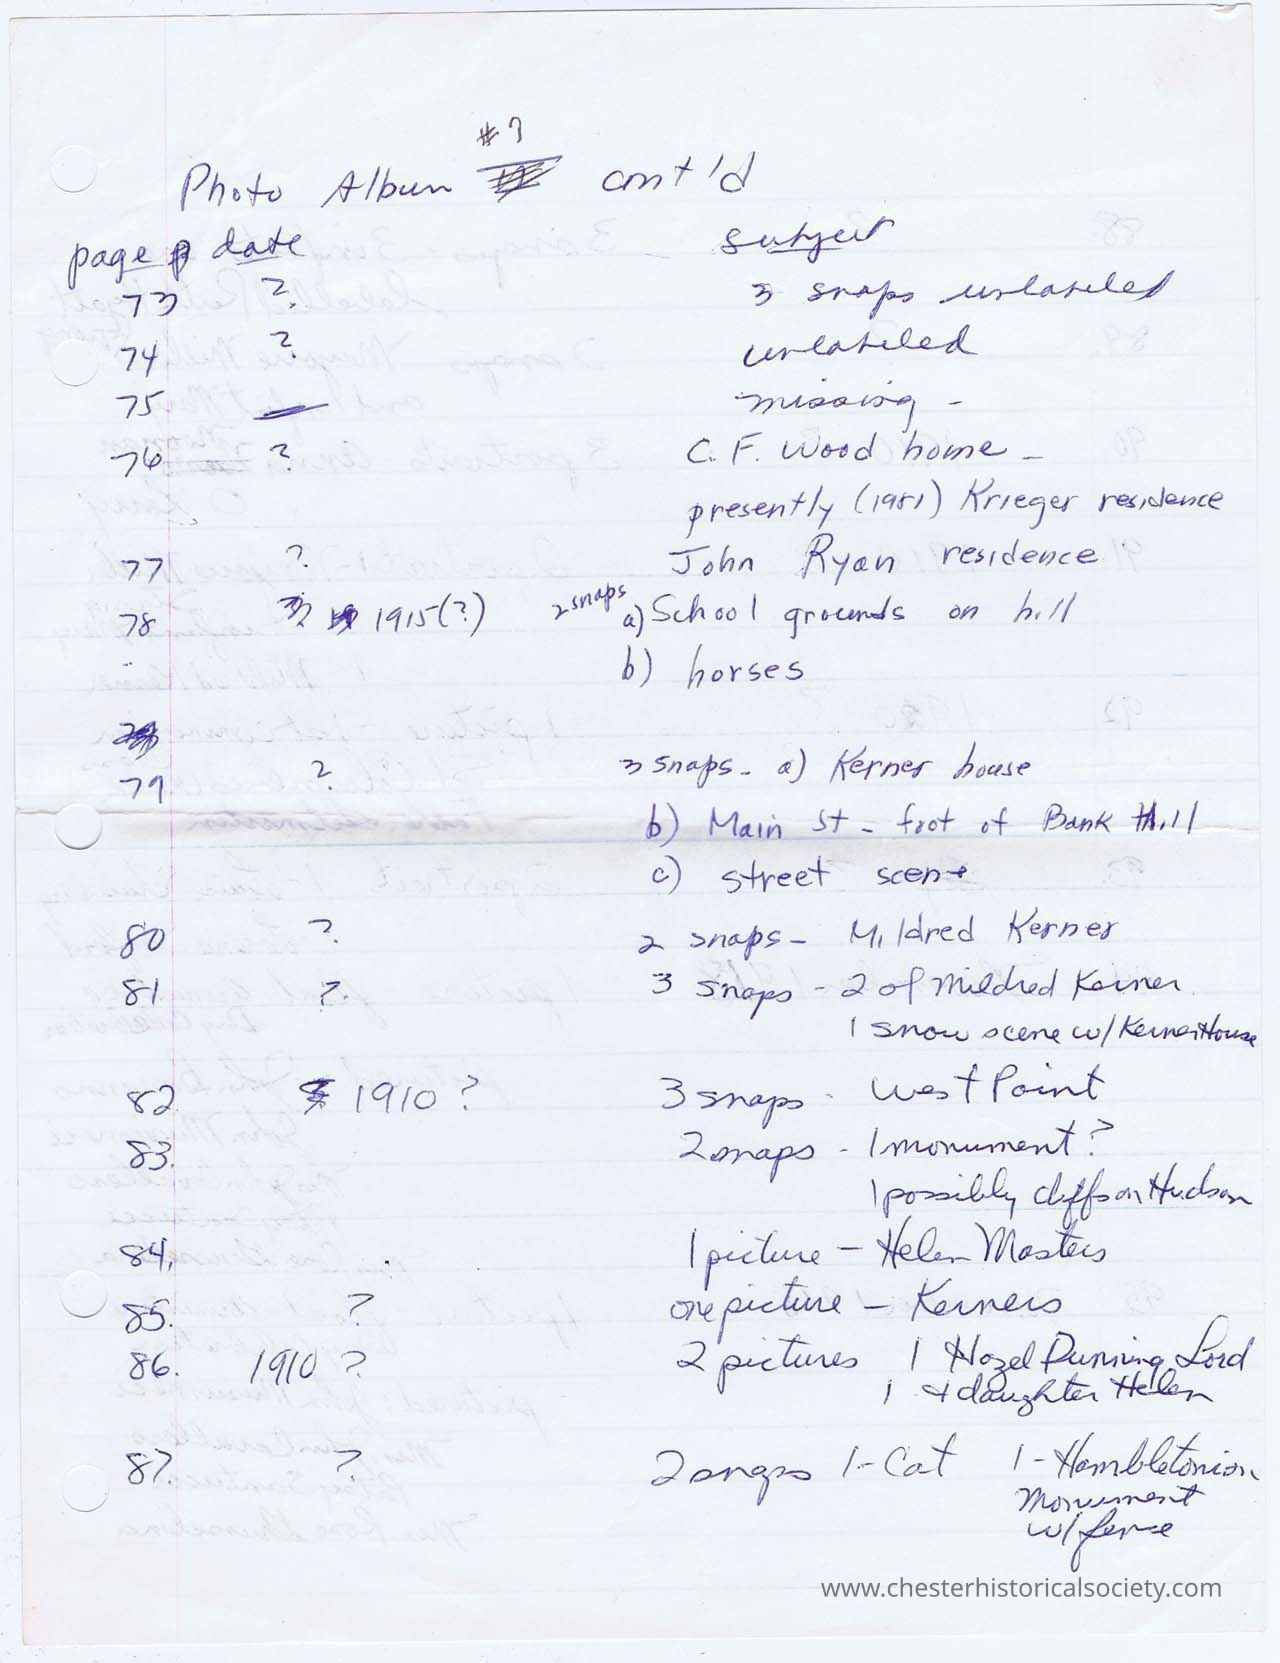 #7
Photo Album cont'd
page date subject
73 ? 3 snaps unlabeled
74 ? unlabeled
75 — missing -
76 ? C. F. Wood home -
presently (1981) Krieger residence
77 ? John Ryan residence
78 1915(?) 2 snaps a) School grounds on hill
b) horses
79 ? 3 snaps - a) Kerner house
b) Main St - foot of Bank Hill
c) street scene
80 ? 2 snaps - Mildred Kerner
81 ? 3 snaps - 2 of Mildred Kerner
1 snow scene w/ Kerner House
82 1910 ? 3 snaps - West Point
83. 2 snaps - 1 monument?
1 possibly cliffs on Hudson
84. 1 picture - Helen Masters
85. ? one picture - Kerners
86. 1910 ? 2 pictures 1 Hazel Dunning Lord
1 + daughter Helen
87. ? 2 snaps 1- Cat 1- Hambletonian
Monument
w/ fence
www.chesterhistoricalsociety.com